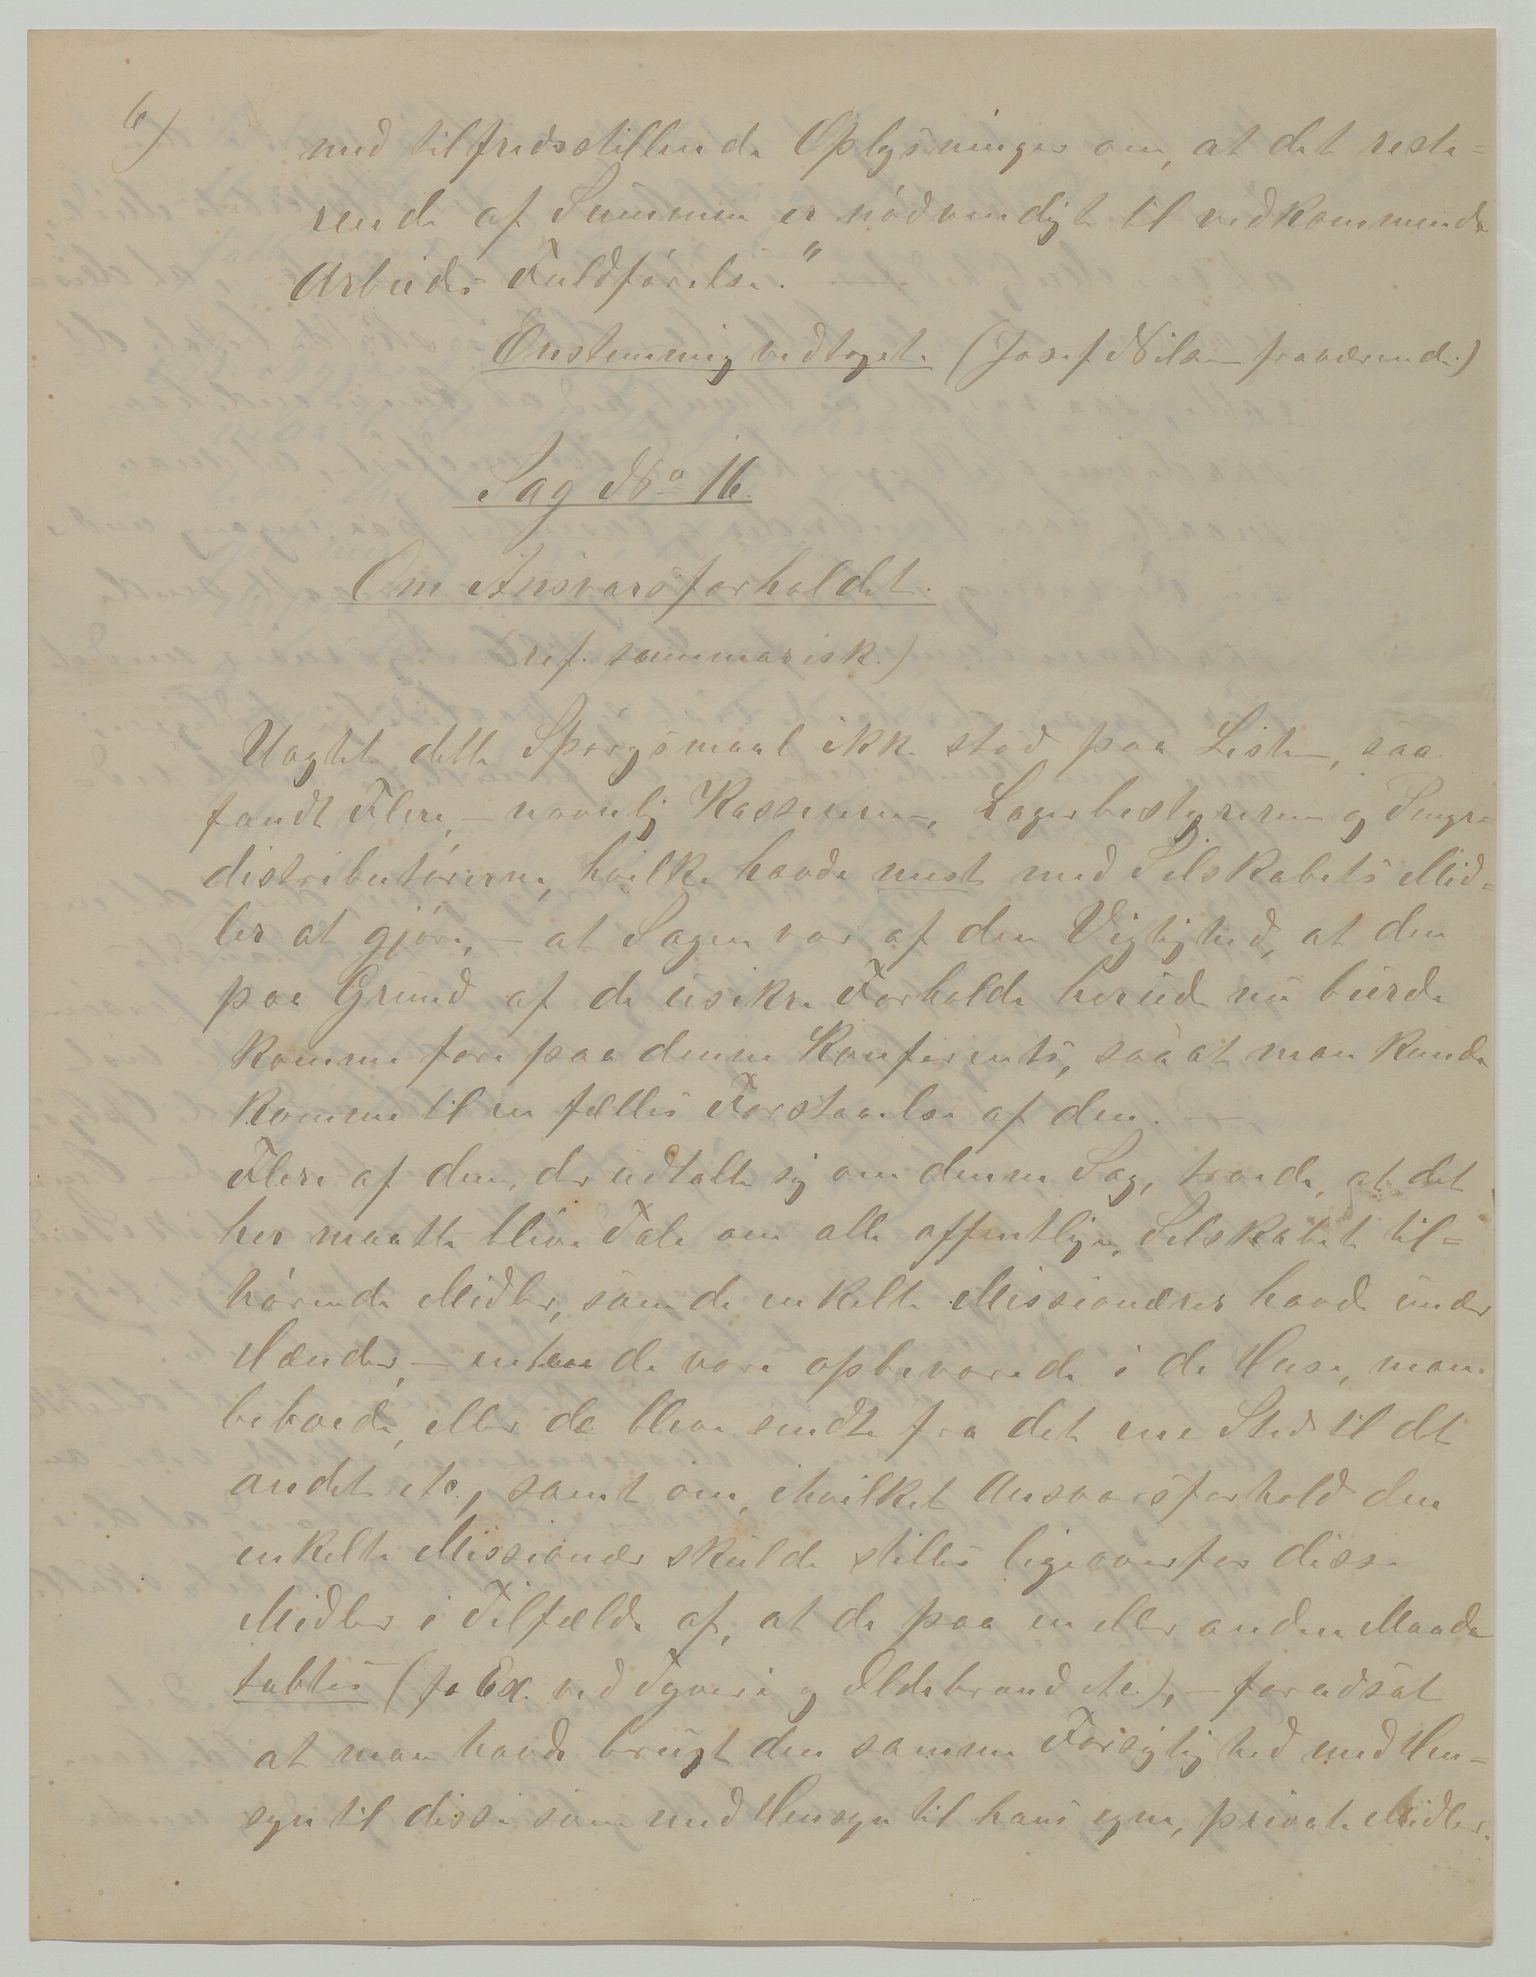 6)
med tilfredsstillende Oplysninger om, at det reste=
rende af Summen er nödvendigt til vedkommende
Arbeides Fuldförelse."
Enstemmig vedtaget. (Josef Nilsen fraværende.)
Sag No 16.
Om Ansvarsforholdet.
ref. summarisk.)
Uagtet dette Spörgsmaal ikke stod paa Listen, saa
fandt Flere, — navnlig Kassereren, Lagerbestyreren og Penge=
distributörerne, hvilke havde mest med Selskabets Mid=
ler at gjöre, — at Sagen var af den Vigtighed, at den
paa Grund af de usikre Forholde herude nu burde
komme fore paa denne Konferents, saa at man kunde
komme til en fælles Forstaaelse af den. —
Flere af dem, der udtalte sig om denne Sag, troede, at det
her maatte blive Tale om alle offentlige, Selskabet til=
hörende Midler, som de enkelte Missionærer havde under
Hænder, — enten de vare opbevarede i de Huse, man
beboede, eller de bleve sendte fra det ene Sted til det
andet etc., samt om, i hvilket Ansvarsforhold den
enkelte Missionær skulde stilles ligeoverfor disse
Midler i Tilfælde af, at de paa en eller anden Maade
tabtes (f. Ex. ved Tyveri og Ildebrand etc.), — forudsat
at man havde brugt den samme Forsigtighed med Hen=
syn til disse som med Hensyn til hans egne, private Midler.